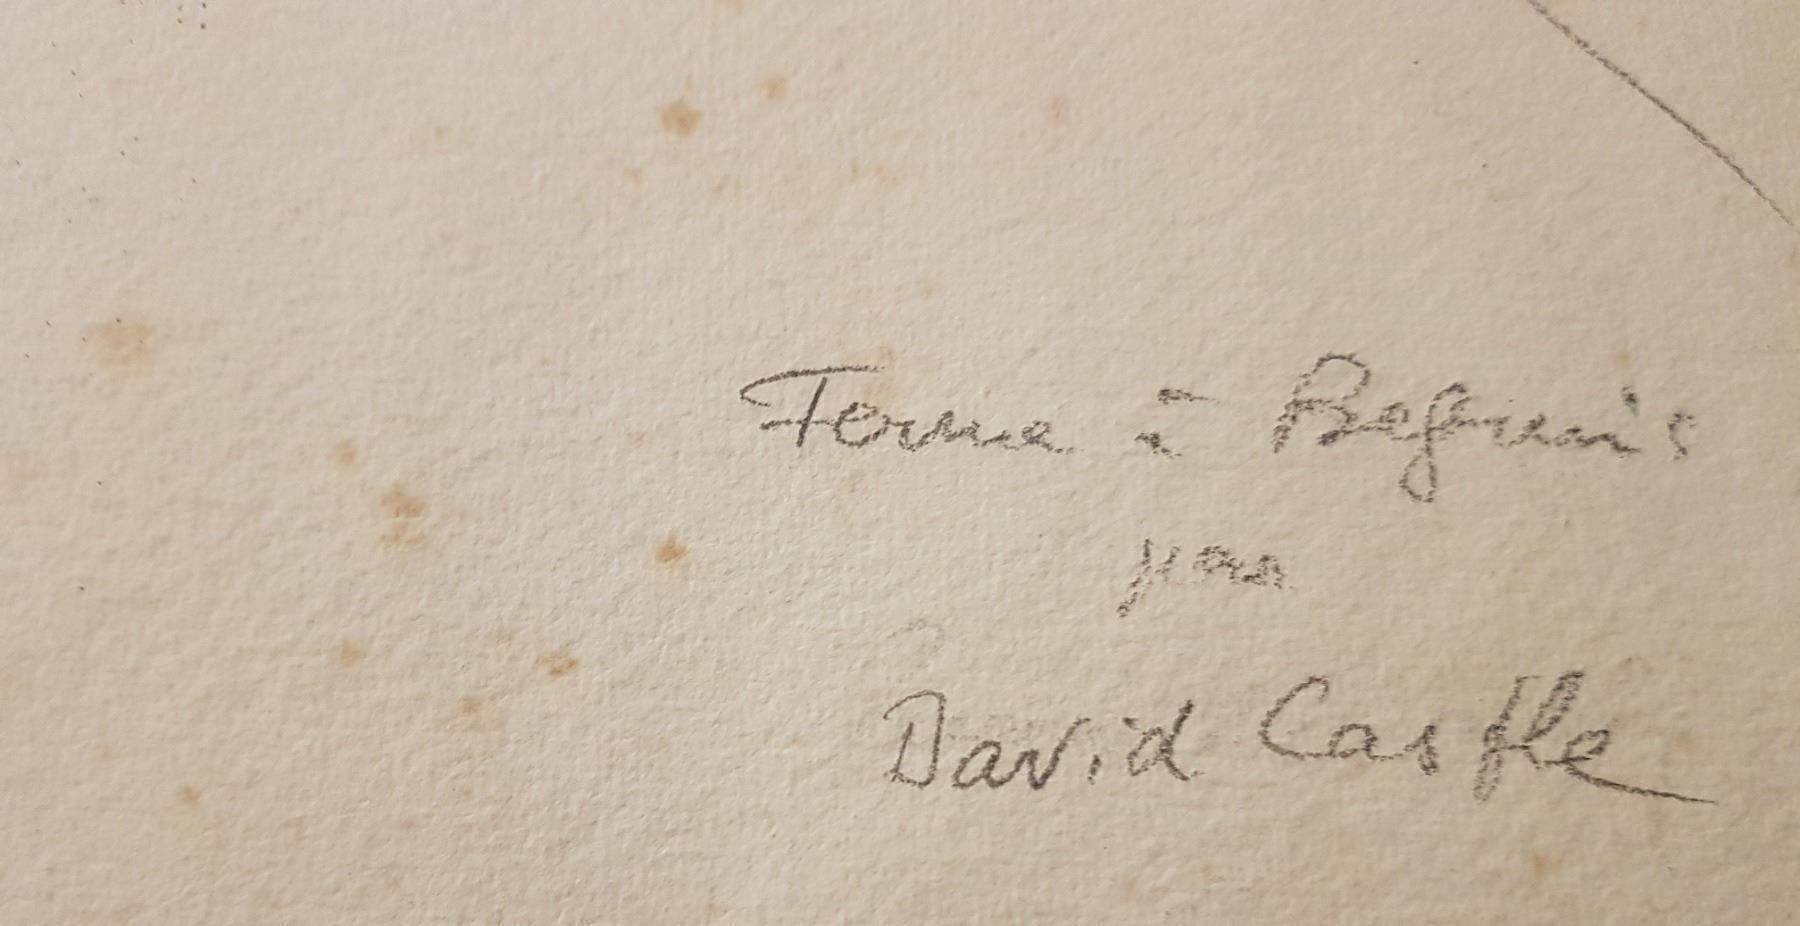 Ferme à Beguin's
par
David Castle